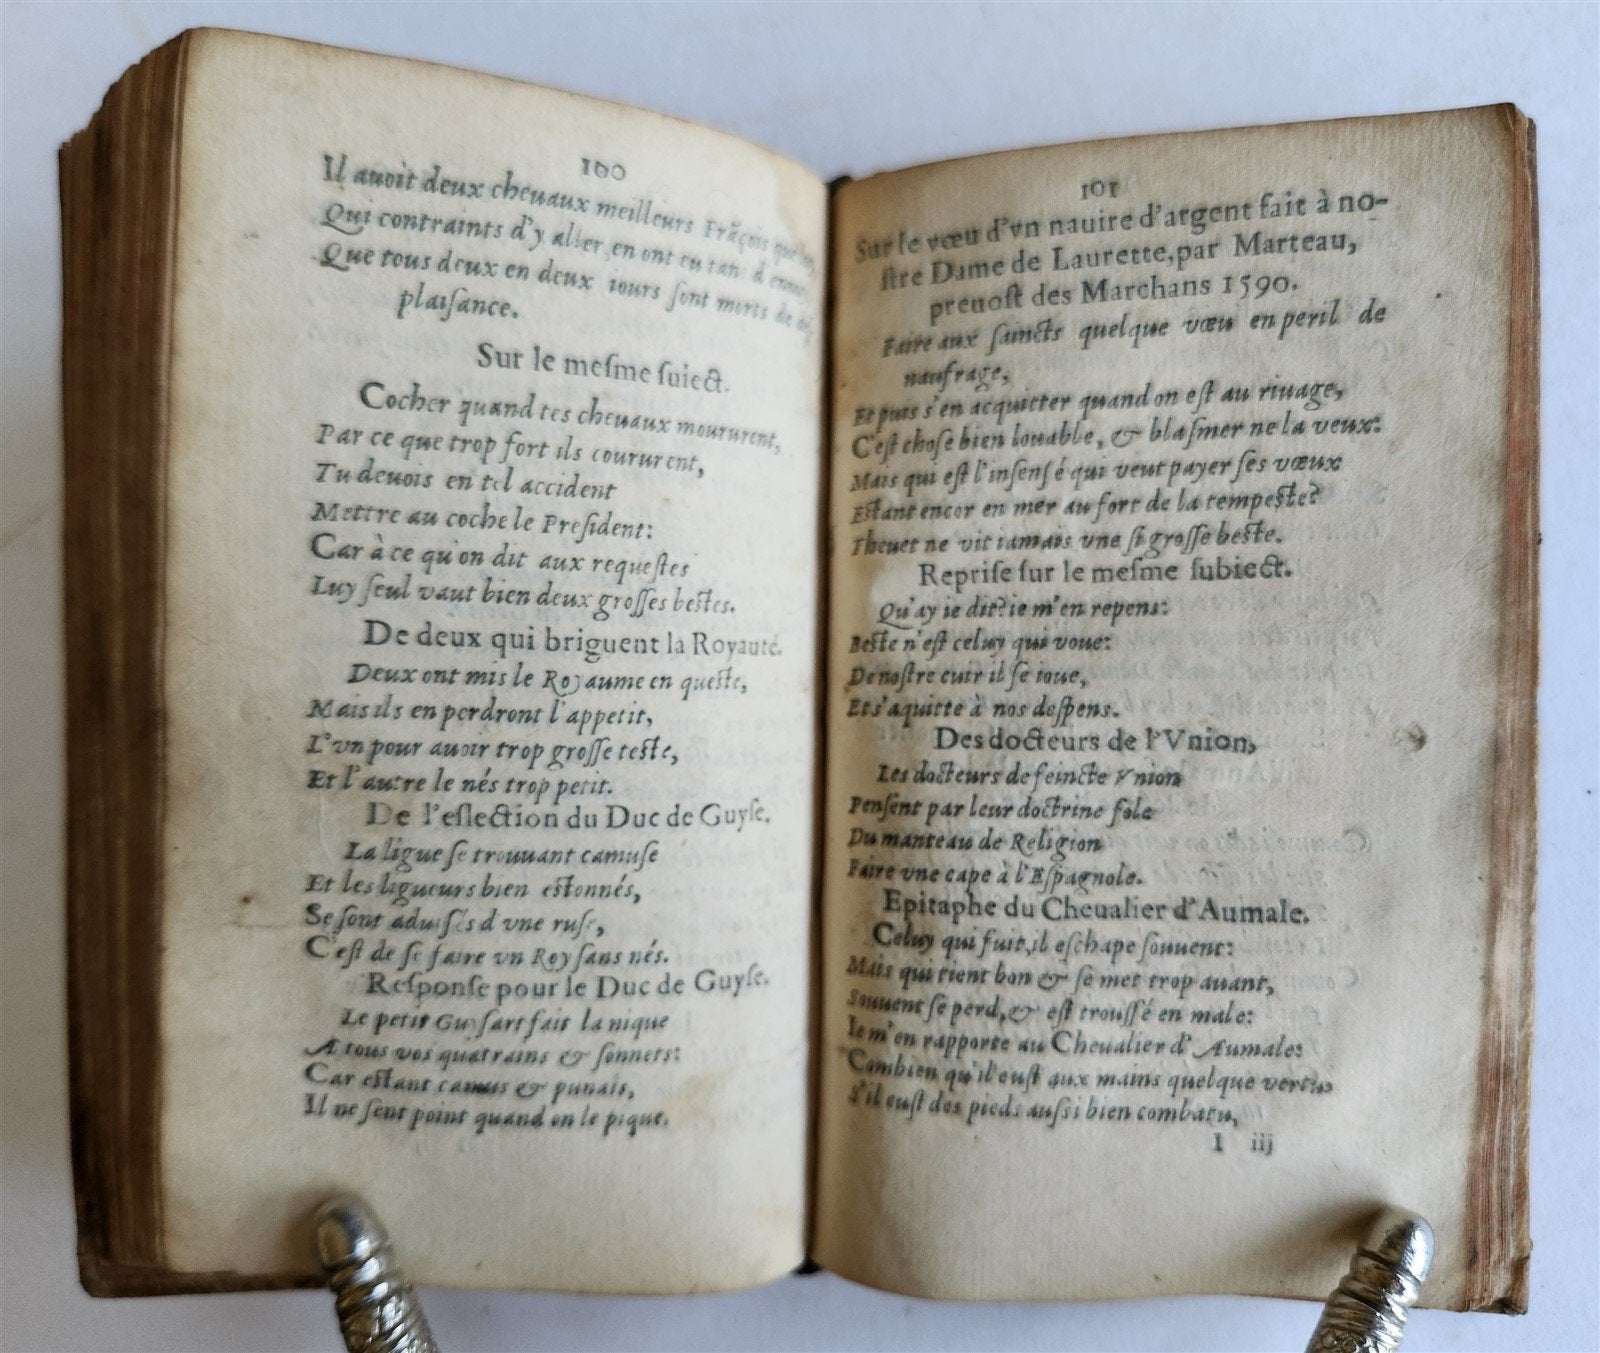 100
Il auoit deux cheuaux meilleurs Frãçois que
Qui contraints d'y aller, en ont eu tant d'ennuy,
Que tous deux en deux iours ſont morts de
plaiſance.
Sur le meſme ſuiect.
Cocher quand tes cheuaux moururent,
Par ce que trop fort ils coururent,
Tu deuois en tel accident
Mettre au coche le Preſident:
Car à ce qu'on dit aux requeſtes
Luy ſeul vaut bien deux groſſes beſtes.
De deux qui briguent la Royauté.
Deux ont mis le Royaume en queſte,
Mais ils en perdront l'appetit,
L'vn pour auoir trop groſſe teſte,
Et l'autre le nés trop petit.
De l'eſlection du Duc de Guyſe.
La ligue ſe trouuant camuſe
Et les ligueurs bien eſtonnés,
Se ſont aduiſés d vne ruſe,
C'eſt de ſe faire vn Roy ſans nés.
Reſponſe pour le Duc de Guyſe.
Le petit Guyſart fait la nique
A tous vos quatrains & ſonnets:
Car eſtant camus & punais,
Il ne ſent point quand on le pique.
101
Sur le vœu d'vn nauire d'argent fait à no-
ſtre Dame de Laurette, par Marteau,
preuoſt des Marchans 1590.
Faire aux ſaincts quelque vœu en peril de
naufrage,
Et puis s'en acquitter quand on eſt au riuage,
C'eſt choſe bien louable, & blaſmer ne la veux:
Mais qui eſt l'inſensé qui veut payer ſes vœux
Eſtant encor en mer au fort de la tempeſte?
Theuet ne vit iamais vne ſi groſſe beſte.
Repriſe ſur le meſme ſubiect.
Qu'ay ie dit? ie m'en repens:
Beſte n'eſt celuy qui voue:
De noſtre cuir il ſe ioue,
Et s'aquitte à nos deſpens.
Des docteurs de l'Vnion,
Les docteurs de feincte Vnion
Penſent par leur doctrine fole
Du manteau de Religion
Faire vne cape à l'Eſpagnole.
Epitaphe du Cheualier d'Aumale.
Celuy qui fuit, il eſchape ſouuent:
Mais qui tient bon & ſe met trop auant,
Souuent ſe perd, & eſt trouſſé en male:
Ie m'en rapporte au Cheualier d'Aumale:
Combien qu'il euſt aux mains quelque vertu,
S'il euſt des pieds auſsi bien combatu,
I iij